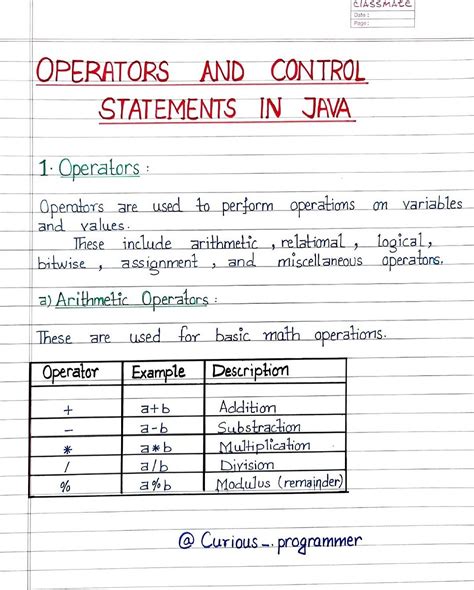 classmate
Date :
Page :
OPERATORS AND CONTROL
STATEMENTS IN JAVA
1. Operators :
Operators are used to perform operations on variables
and values.
These include arithmetic , relational , logical ,
bitwise , assignment , and miscellaneous operators.
a) Arithmetic Operators :
These are used for basic math operations.
Operator Example Description
+ a+b Addition
- a-b Substraction
* a*b Multiplication
/ a/b Division
% a%b Modulus (remainder)
@ Curious_. programmer